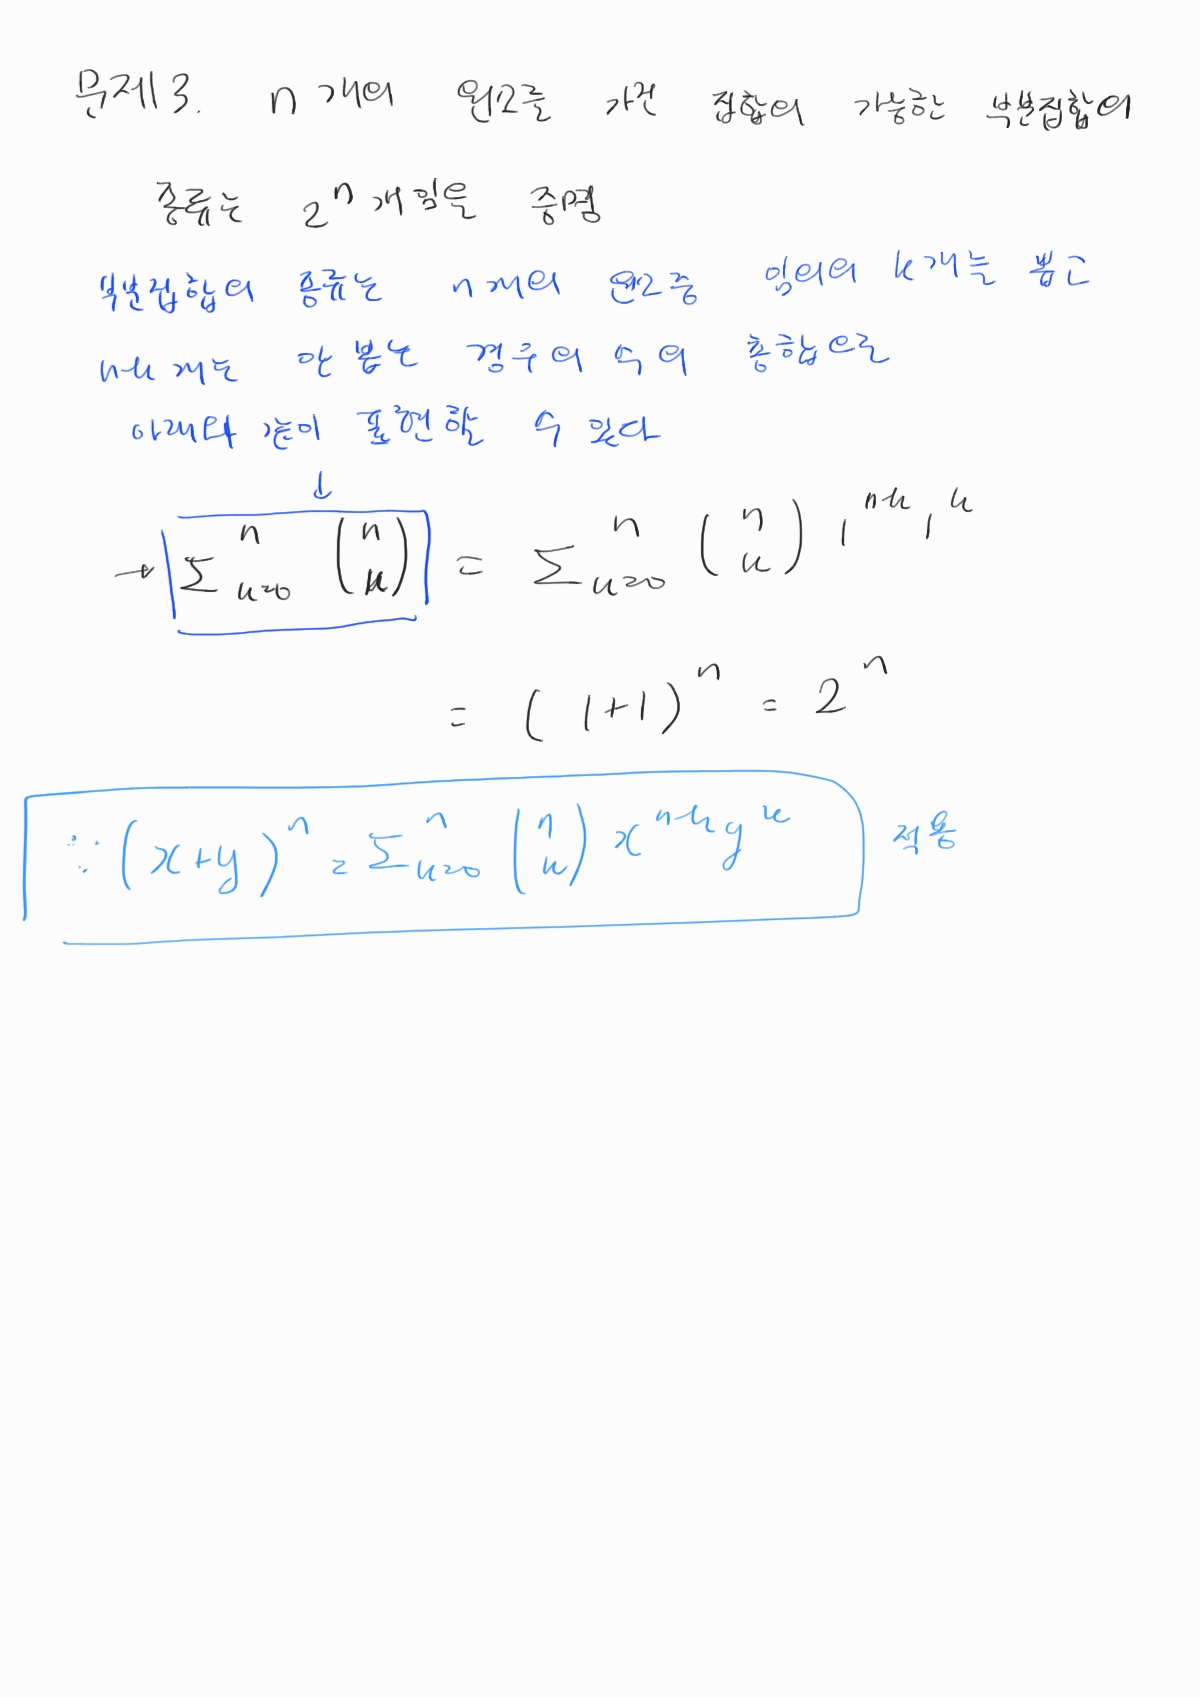 문제 3. n개의 원소를 가진 집합의 가능한 부분집합의
종류는 2^n개임을 증명
부분집합의 종류는 n개의 원소중 임의의 k개는 뽑고
n-k개는 안 뽑는 경우의 수의 총합으로
아래와 같이 표현할 수 있다
↓
→ Σ_{k=0}^{n} (n k) = Σ_{k=0}^{n} (n k) 1^{n-k} 1^k
= (1+1)^n = 2^n
∵ (x+y)^n = Σ_{k=0}^{n} (n k) x^{n-k} y^k 적용